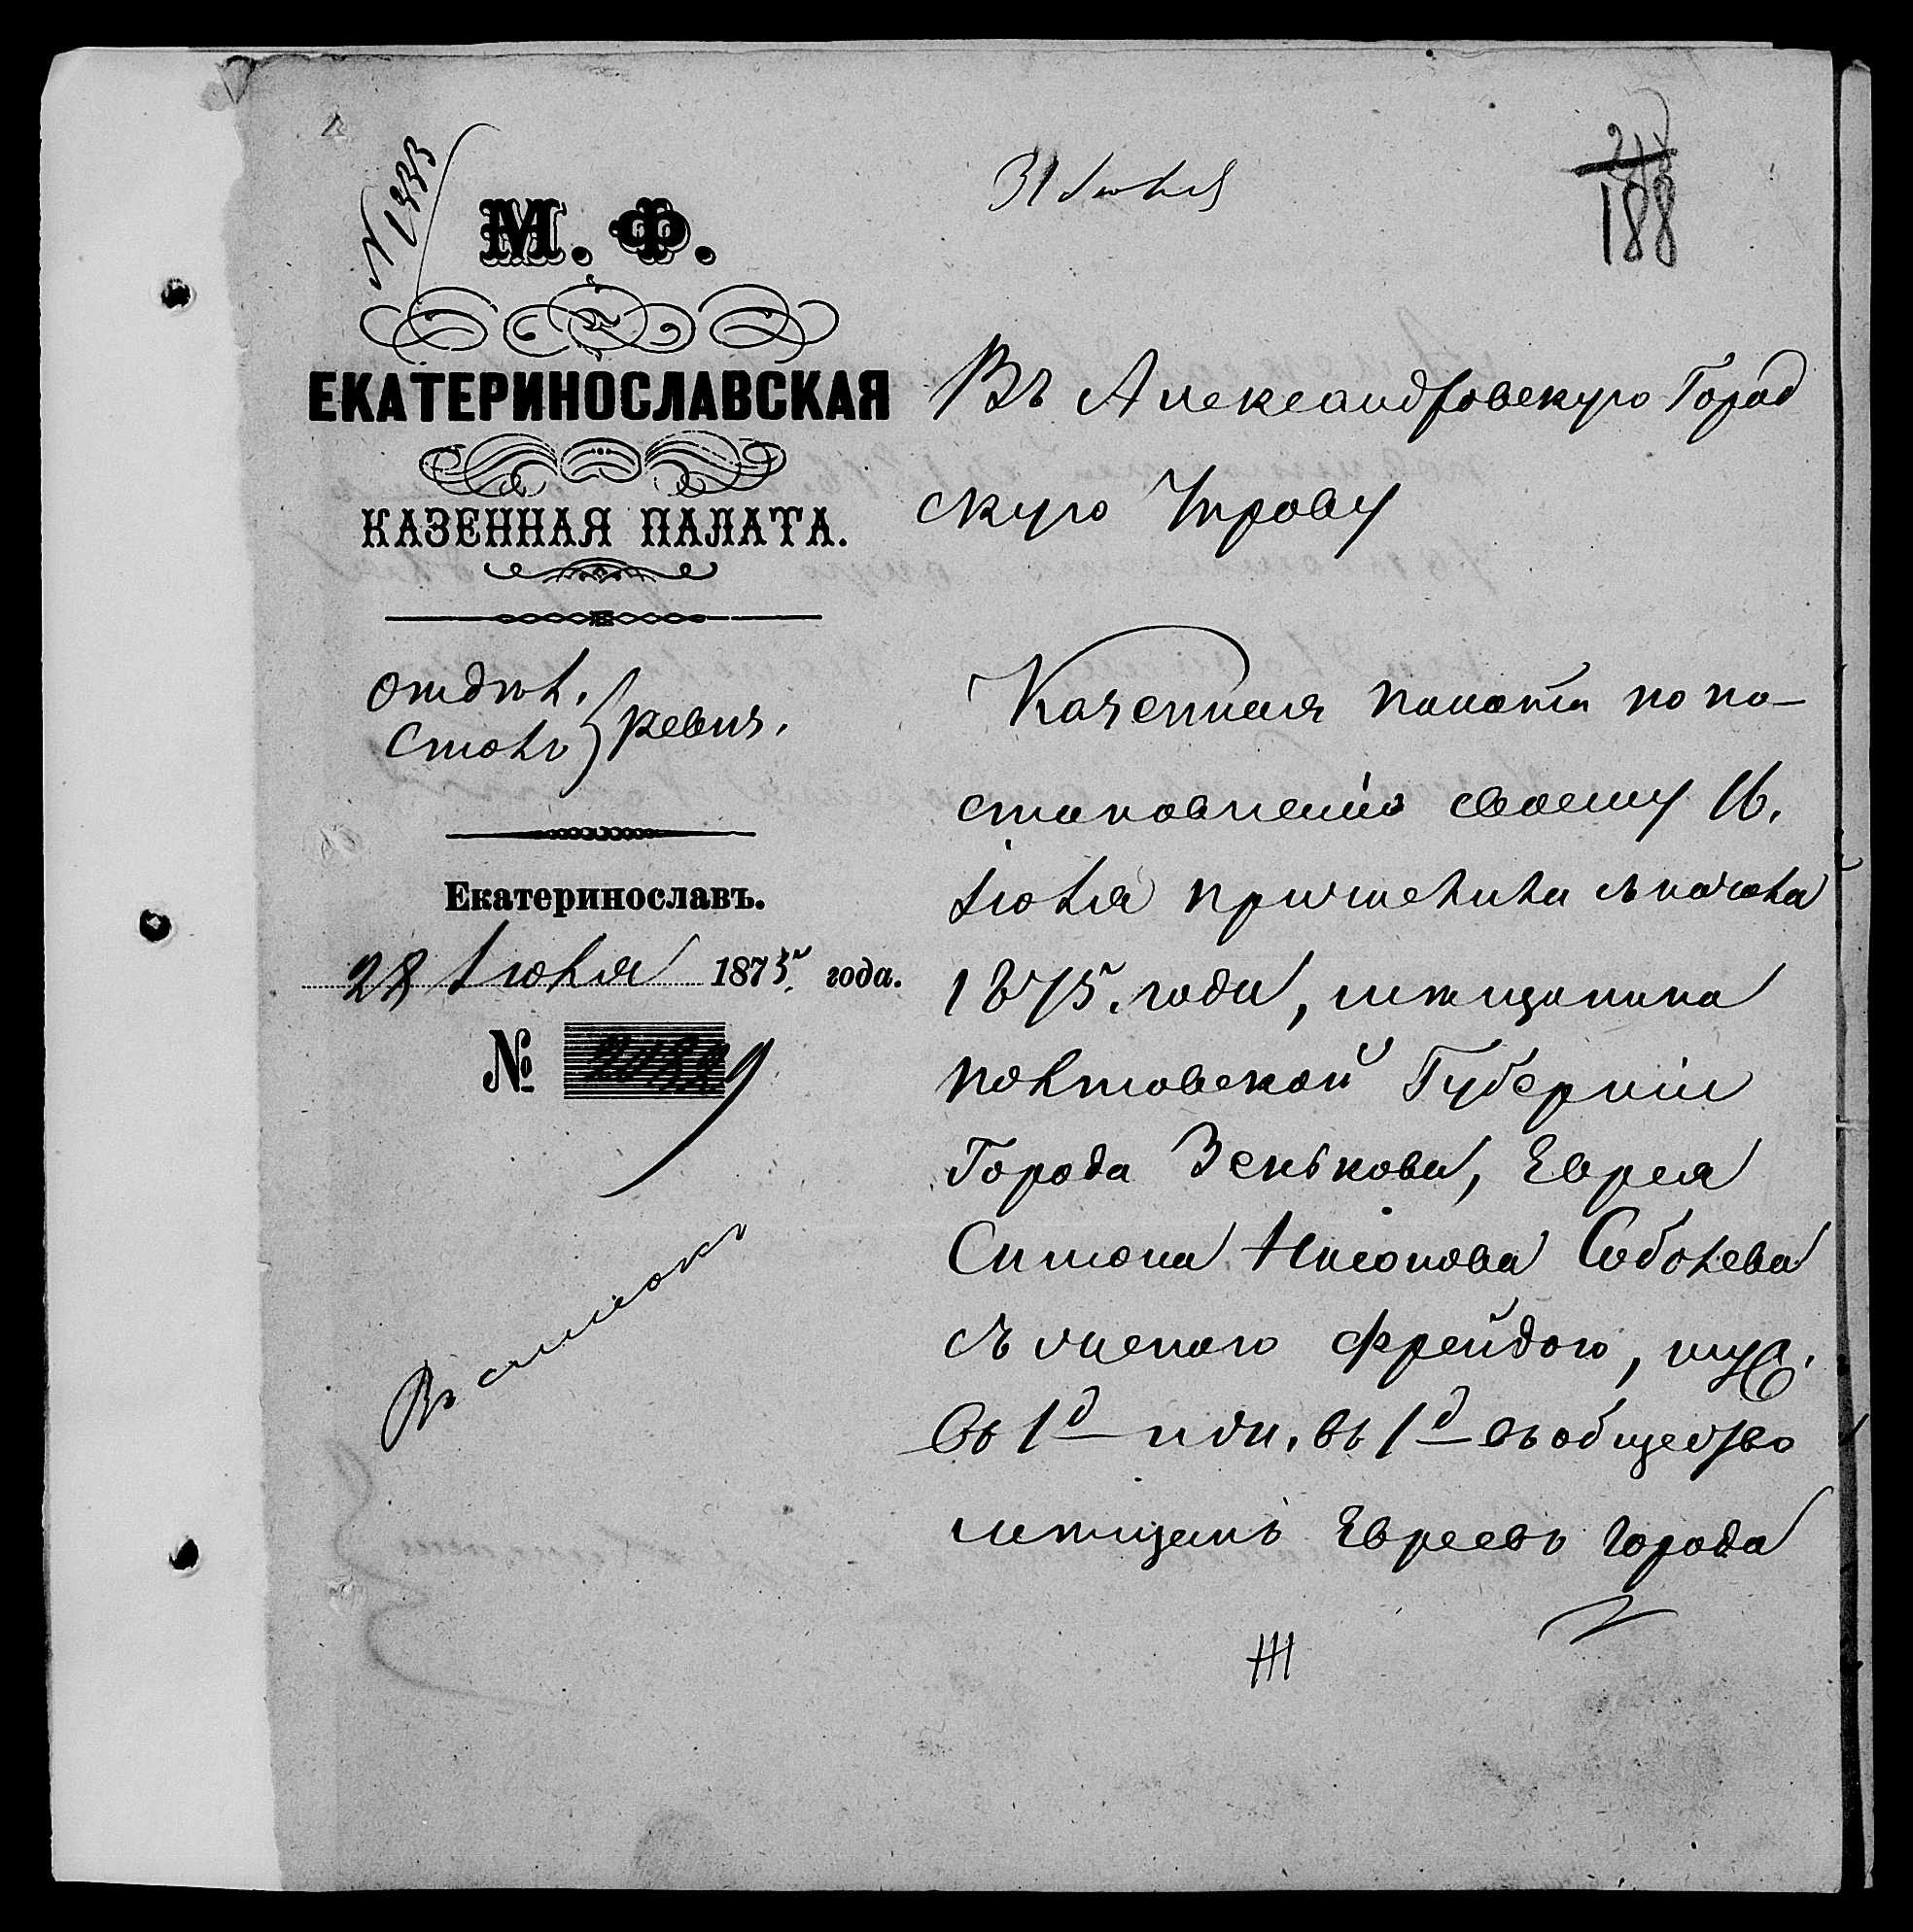 № 1333
31 Июля
188
М. Ф.
ЕКАТЕРИНОСЛАВСКАЯ
КАЗЕННАЯ ПАЛАТА.
Отдѣл.
Столъ } ревиз.
Екатеринославъ.
28 Июля 1875 года.
№
Въ Александровскую Город
скую Управу
Казенная палата по по-
становленію своему 16.
Іюля причислила съ начала
1875. года, мѣщанина
полтовской Губерніи
Города Зенькова, Еврея
Симона Соболева
съ женою Фрейдою, муж.
въ 1д и жен. въ 1д въ общество
мѣщанъ Евреевъ города